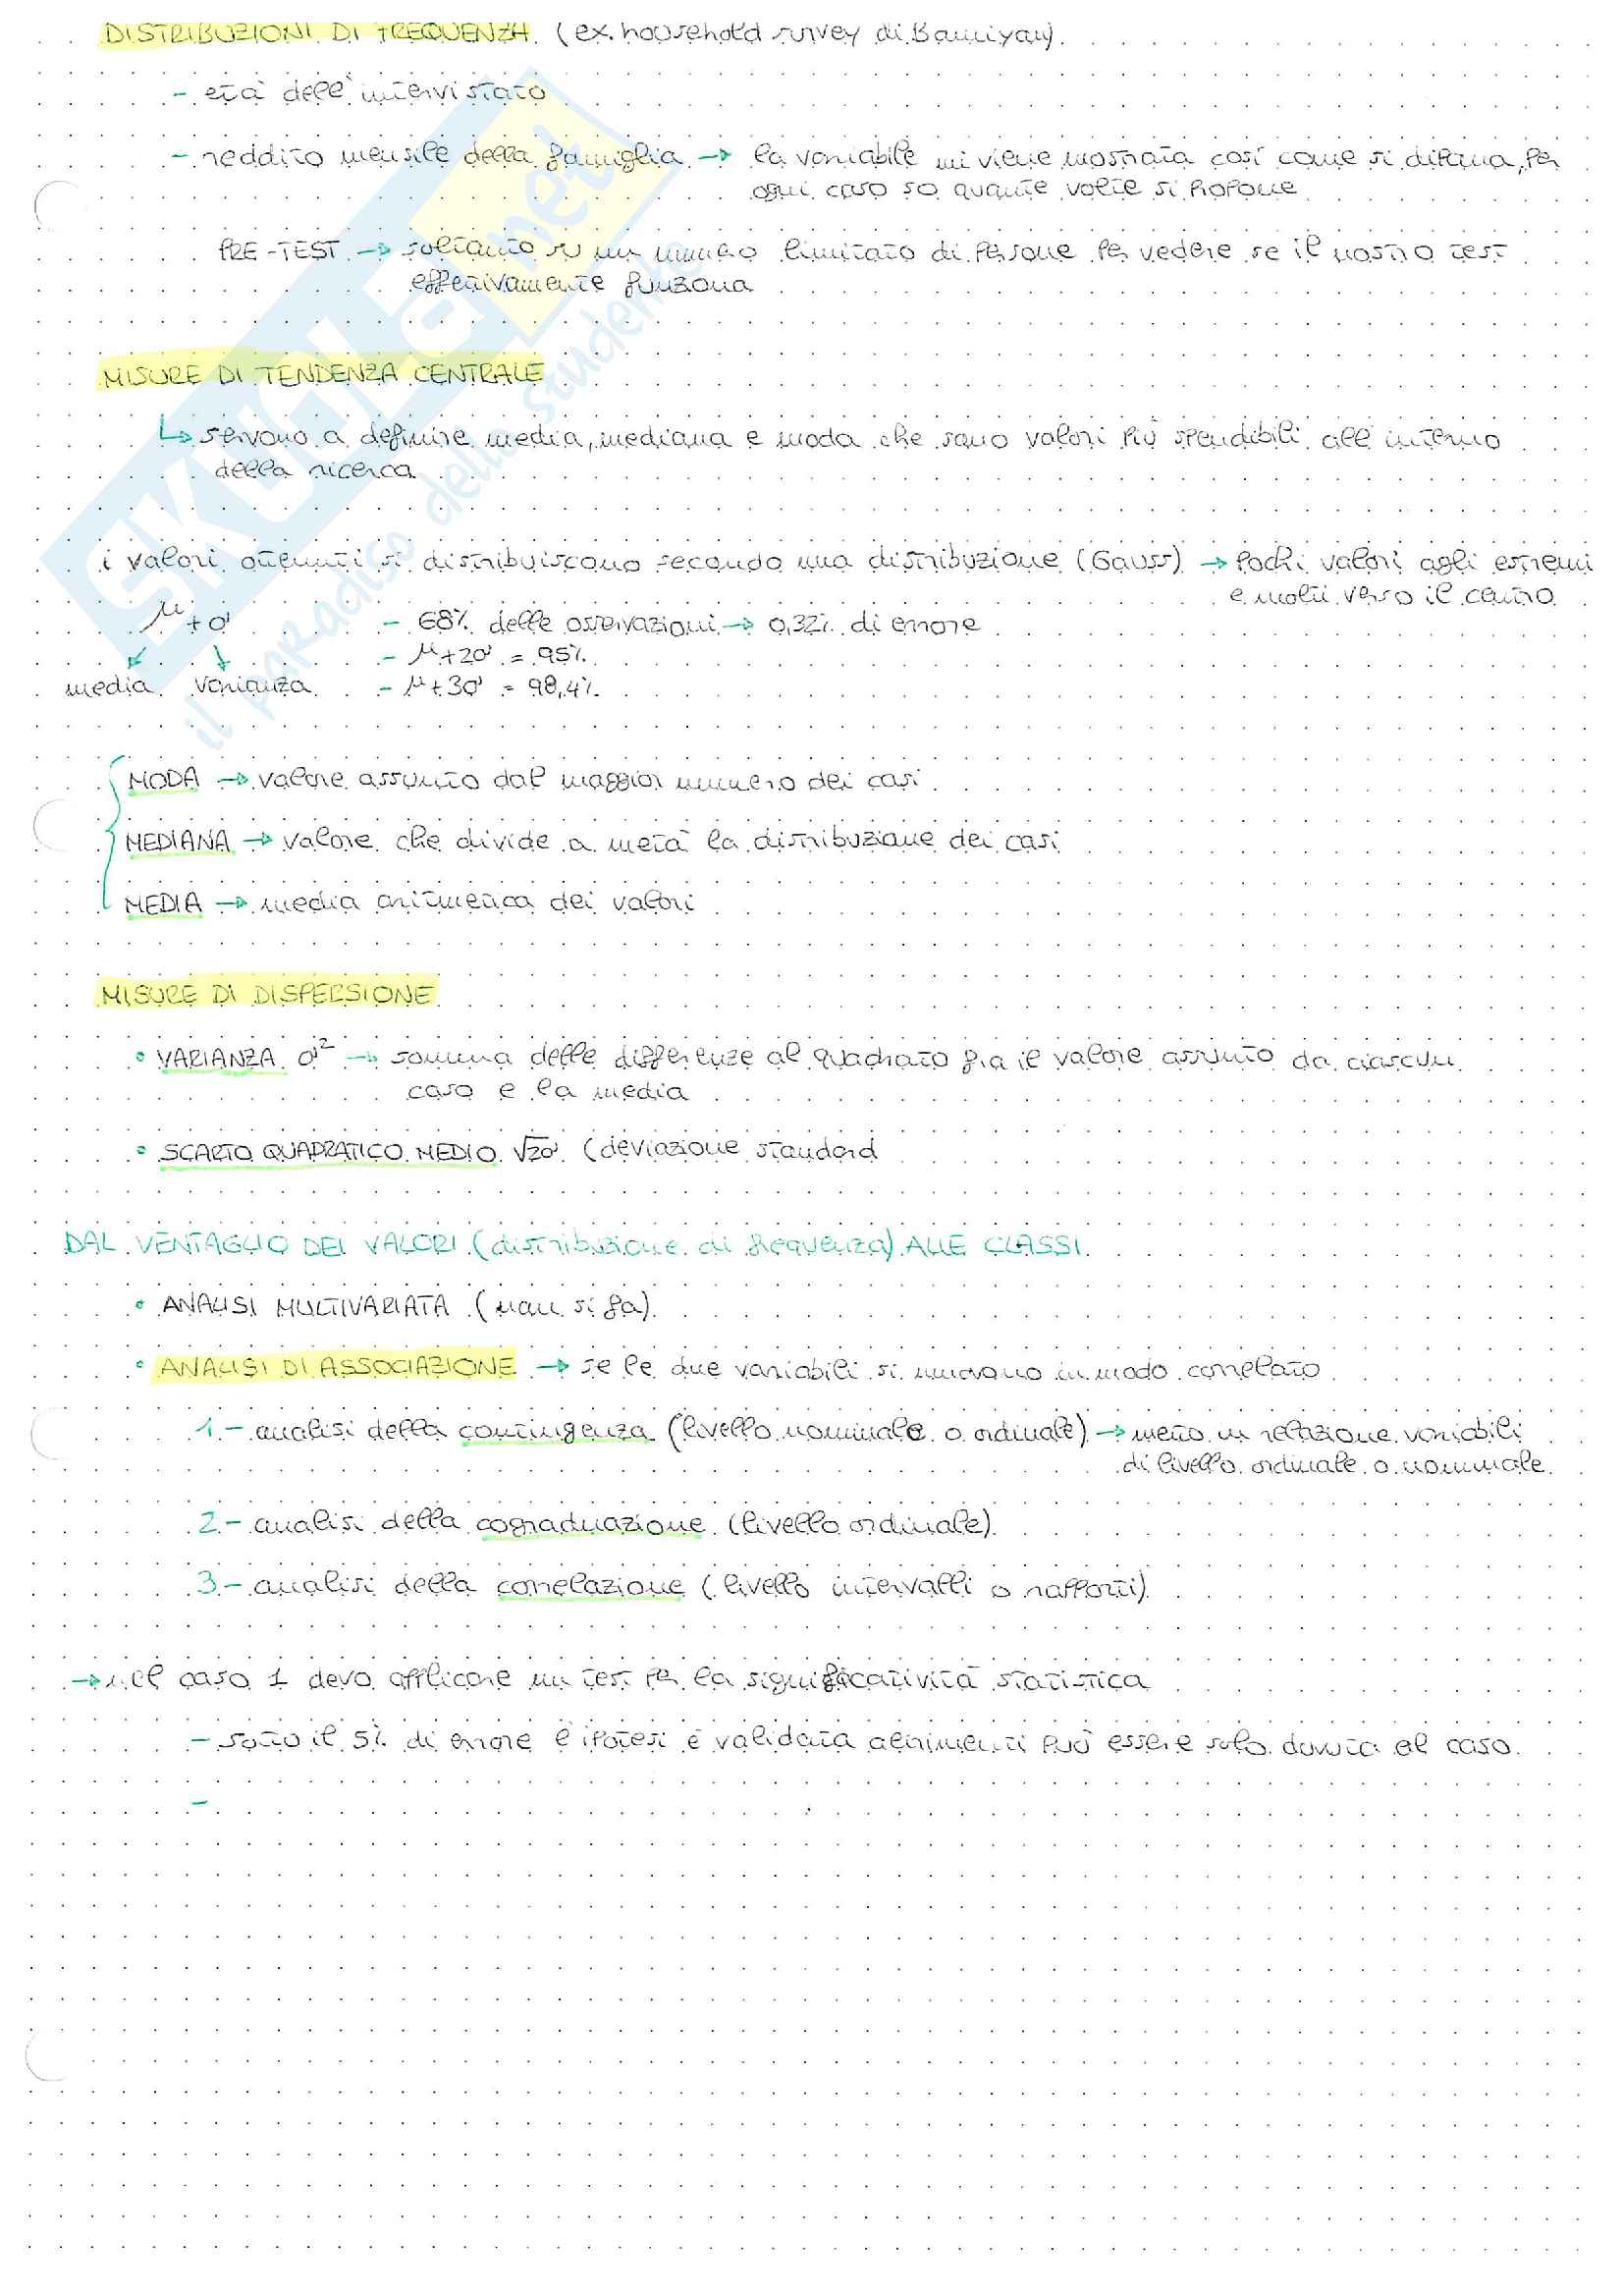 DISTRIBUZIONI DI FREQUENZA (ex. household survey di Bamiyan)
- età dell'intervistato
- reddito mensile della famiglia → la variabile mi viene mostrata così come si dipana, per
ogni caso so quante volte si propone
PRE-TEST → soltanto su un numero limitato di persone per vedere se il nostro test
effettivamente funziona
MISURE DI TENDENZA CENTRALE
↳ servono a definire media, mediana e moda che sono valori più spendibili all'interno
della ricerca
i valori ottenuti si distribuiscono secondo una distribuzione (Gauss) → pochi valori agli estremi
e molti verso il centro
μ+σ - 68% delle osservazioni → 0,32% di errore
- μ+2σ = 95%
media varianza - μ+3σ = 98,4%
MODA → valore assunto dal maggior numero dei casi
MEDIANA → valore che divide a metà la distribuzione dei casi
MEDIA → media aritmetica dei valori
MISURE DI DISPERSIONE
• VARIANZA σ² → somma delle differenze al quadrato fra il valore assunto da ciascun
caso e la media
• SCARTO QUADRATICO MEDIO √2σ (deviazione standard
DAL VENTAGLIO DEI VALORI (distribuzione di frequenza) ALLE CLASSI
• ANALISI MULTIVARIATA (non si fa)
• ANALISI DI ASSOCIAZIONE → se le due variabili si muovono in modo correlato
1 - analisi della contingenza (livello nominale o ordinale) → metto in relazione variabili
di livello ordinale o nominale
2 - analisi della cograduazione (livello ordinale)
3 - analisi della correlazione (livello intervalli o rapporti)
→ nel caso 1 devo applicare un test per la significatività statistica
- sotto il 5% di errore l'ipotesi è validata altrimenti può essere solo dovuta al caso
-
SKUOLA.net
il paradiso dello studente